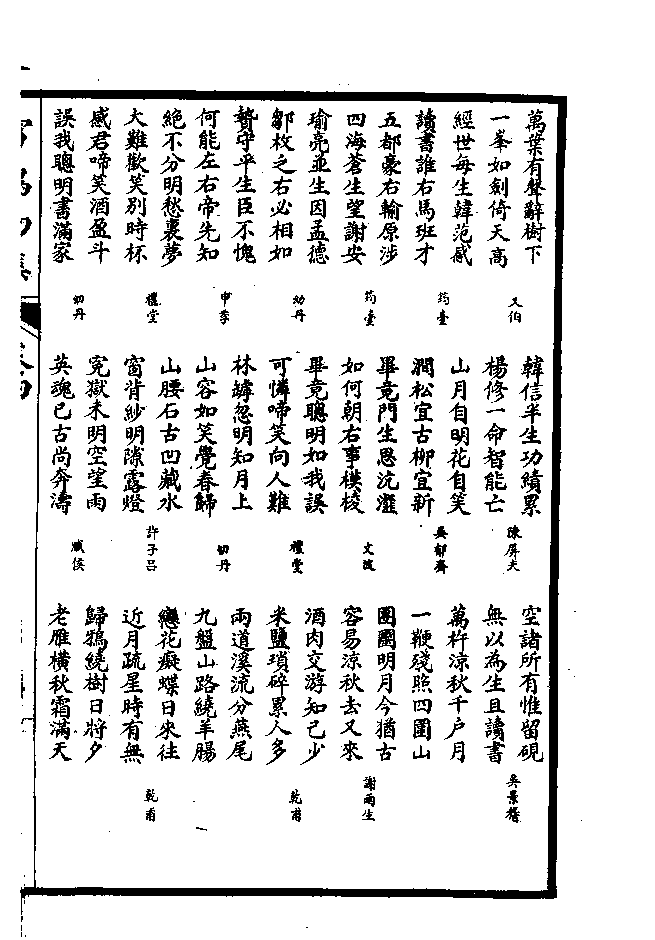 萬葉有聲辭樹下
一峯如劍倚天高
又伯
經世每生韓范感
讀書誰右馬班才
筠臺
五都豪右輸原涉
四海蒼生望謝安
筠臺
瑜亮並生因孟德
鄒枚之右必相如
幼丹
贄守平生臣不愧
何能左右帝先知
申季
絶不分明愁裏夢
大難歡笑別時杯
禮堂
感君啼笑酒盈斗
誤我聰明書滿家
幼丹
韓信半生功績累
楊修一命智能亡
陳屏夫
山月自明花自笑
澗松宜古柳宜新
吳郁齋
畢竟門生恩沆瀣
如何朝右事模棱
文波
畢竟聰明如我誤
可憐啼笑向人難
禮堂
林罅忽明知月上
山容如笑覺春歸
幼丹
山腰石古凹藏水
窗背紗明隙露燈
許子呂
冤獄未明空望雨
英魂已古尚奔濤
空諸所有惟留硯
無以為生且讀書
吳景
萬杵涼秋千戶月
一鞭殘照四圍山
團圞明月今猶古
容易涼秋去又來
謝雨生
酒肉交游知己少
米鹽瑣碎累人多
乾甫
兩道溪流分燕尾
九盤山路繞羊腸
戀花癡蝶日來往
近月疏星時有無
乾甫
歸鴉繞樹日將夕
老雁橫秋霜滿天